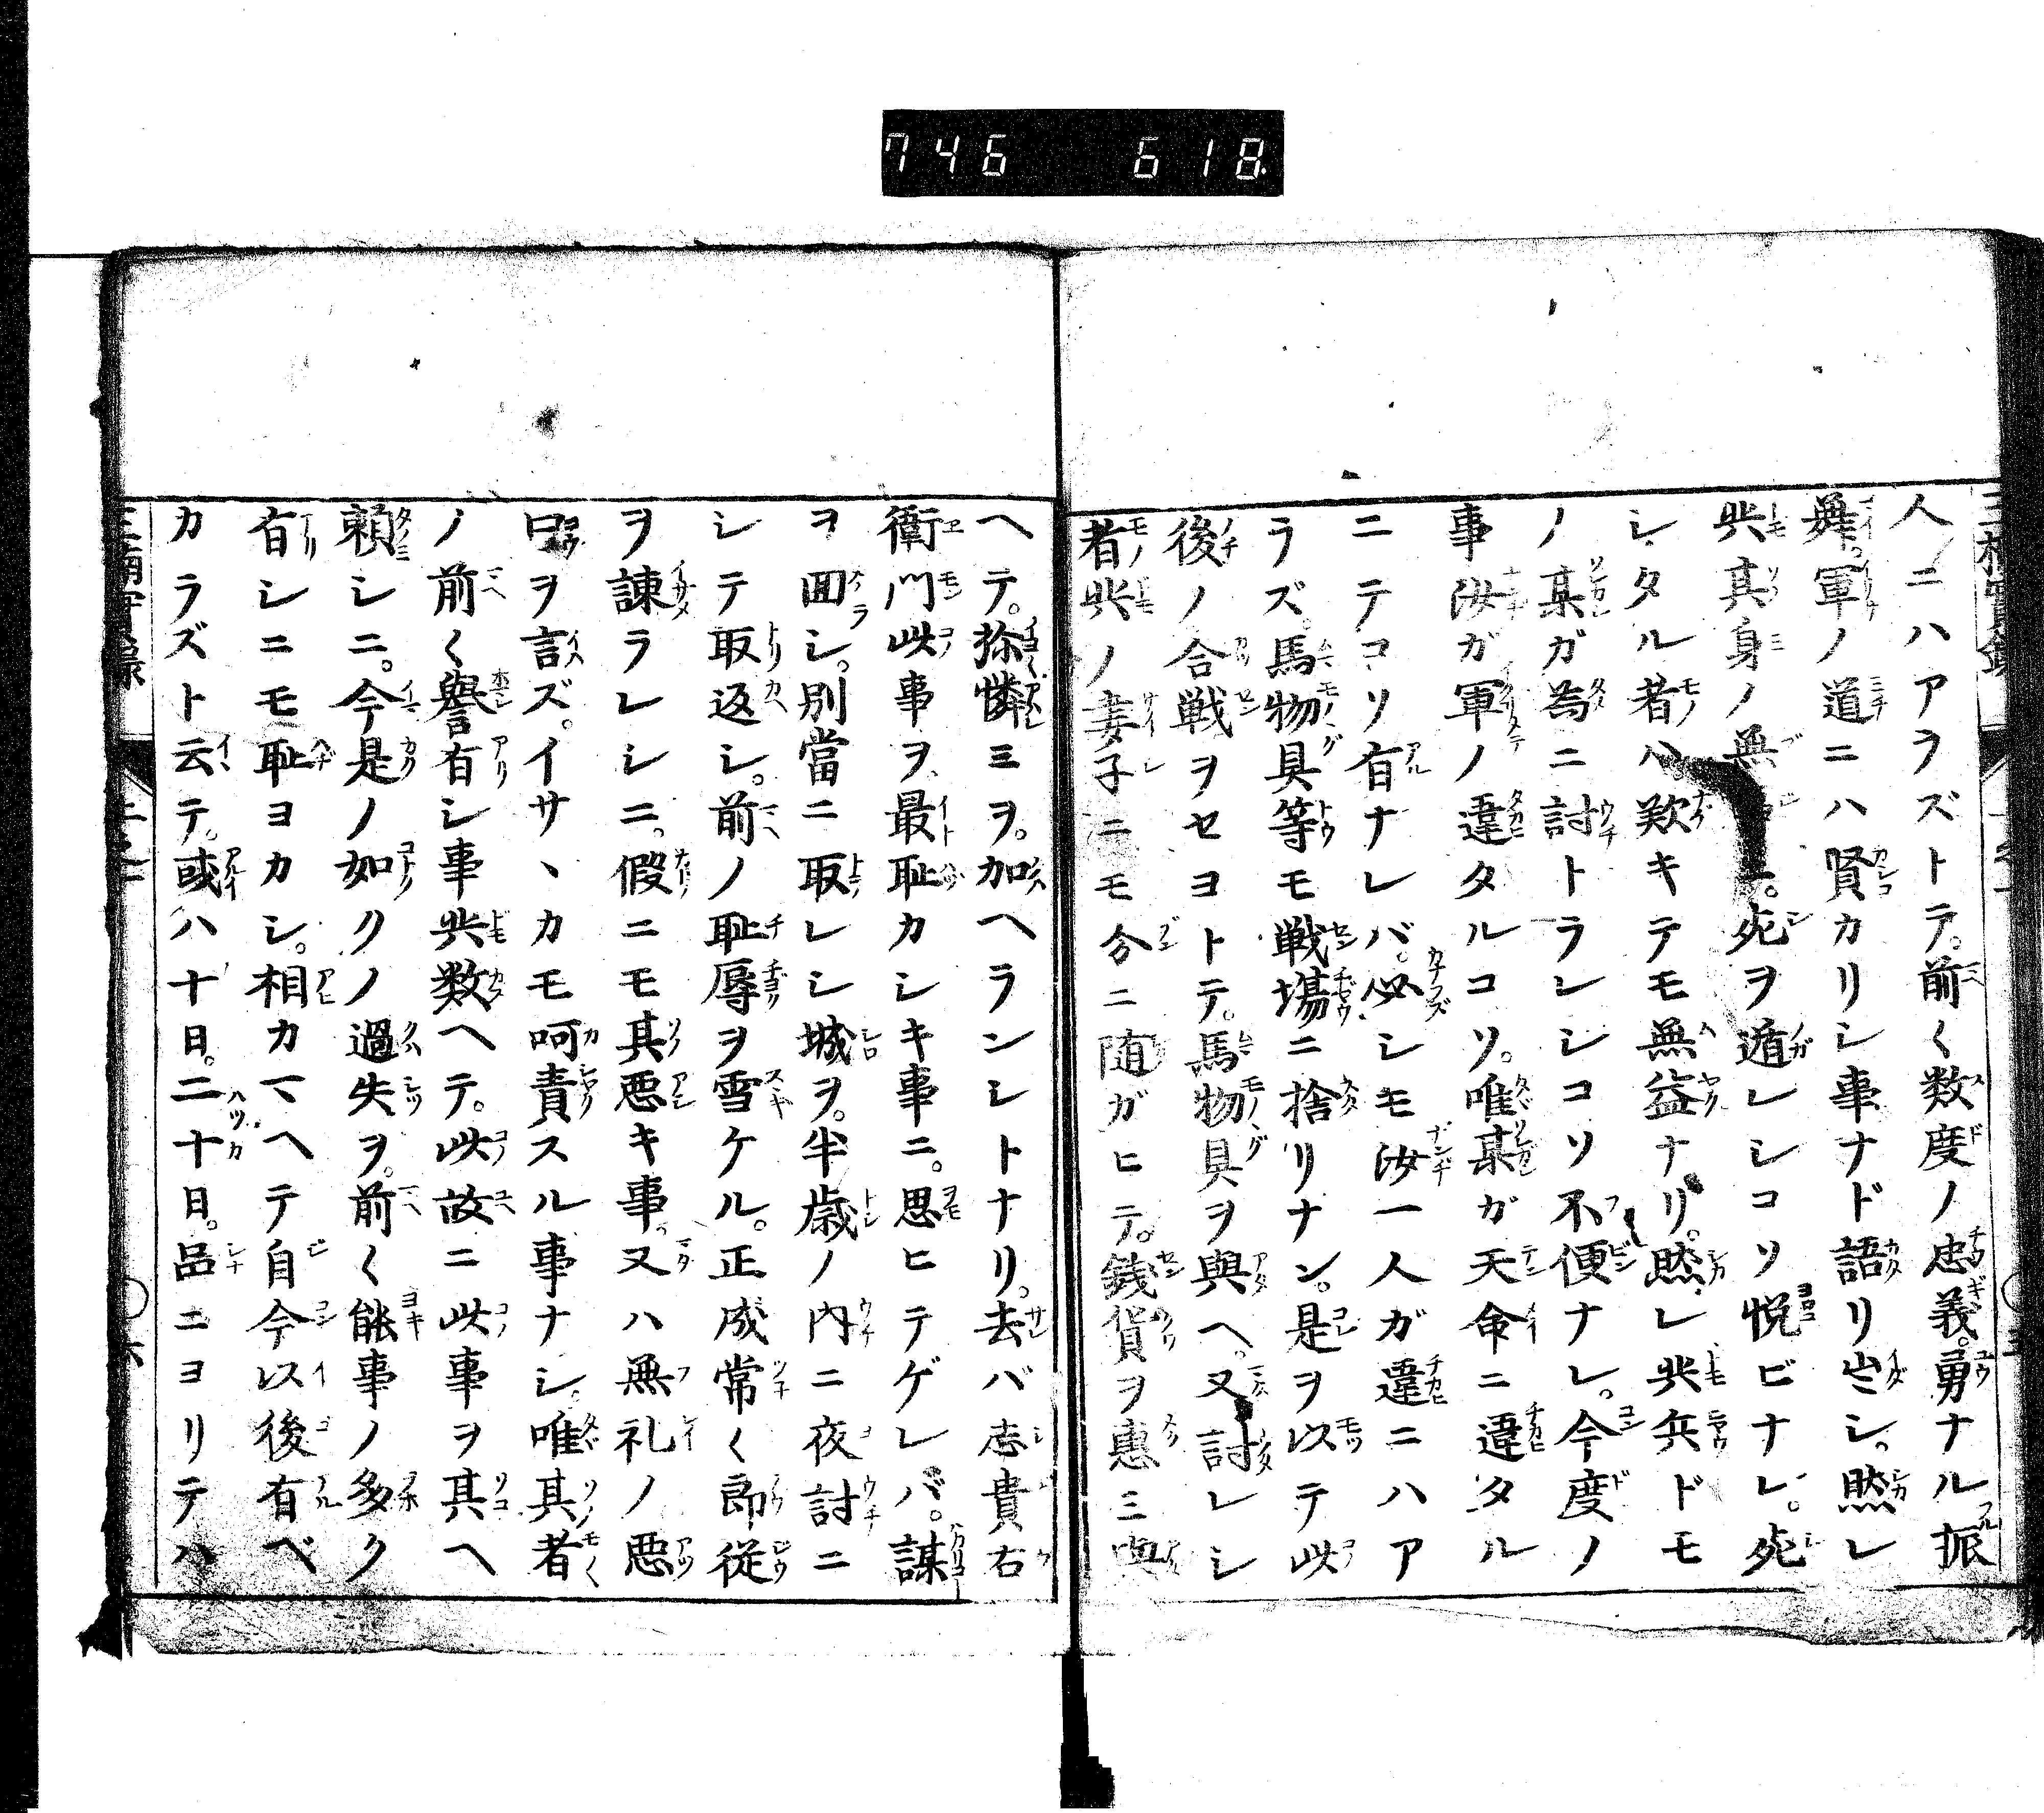 746 618
人ニハアラズトテ。前〱数度ノ忠義。勇ナル振
舞。軍ノ道ニハ賢カリシ事ナド語リ出シ。然レ
共其身ノ無。死ヲ遁レシコソ悦ビナレ。死
シタル者ハ。歎キテモ無益ナリ。然レ共兵ドモ
ノ某ガ為ニ討トラレシコソ不便ナレ。今度ノ
事汝ガ軍ノ違タルコソ。唯某ガ天命ニ違タル
ニテコソ有ナレバ。必シモ汝一人ガ違ニハア
ラズ。馬物具等モ戦場ニ捨リナン。是ヲ以テ此
後ノ合戦ヲセヨトテ。馬物具ヲ與ヘ。又討レシ
者共ノ妻子ニモ分ニ随ガヒテ。銭貨ヲ惠ミ與
ヘテ。弥憐ミヲ。加ヘラントナリ。去バ志貴右
衛門此事ヲ最恥カシキ事ニ。思ヒテゲレバ。謀
ヲ囬シ。別當ニ取レシ城ヲ。半歳ノ内ニ夜討ニ
シテ取返シ。前ノ恥辱ヲ雪ケル。正成常〱郎従
ヲ諫ラレシニ。假ニモ其悪キ事。又ハ無礼ノ悪
口ヲ言ズ。イサヽカモ呵責スル事ナシ。唯其者
ノ前〱譽有シ事共数ヘテ。此故ニ此事ヲ其ヘ
頼シニ。今是ノ如クノ過失ヲ。前〱能事ノ多ク
有シニモ恥ヨカシ。相カマヘテ自今以後有ベ
カラズト云テ。或ハ十日。二十日。品ニヨリテハ
六